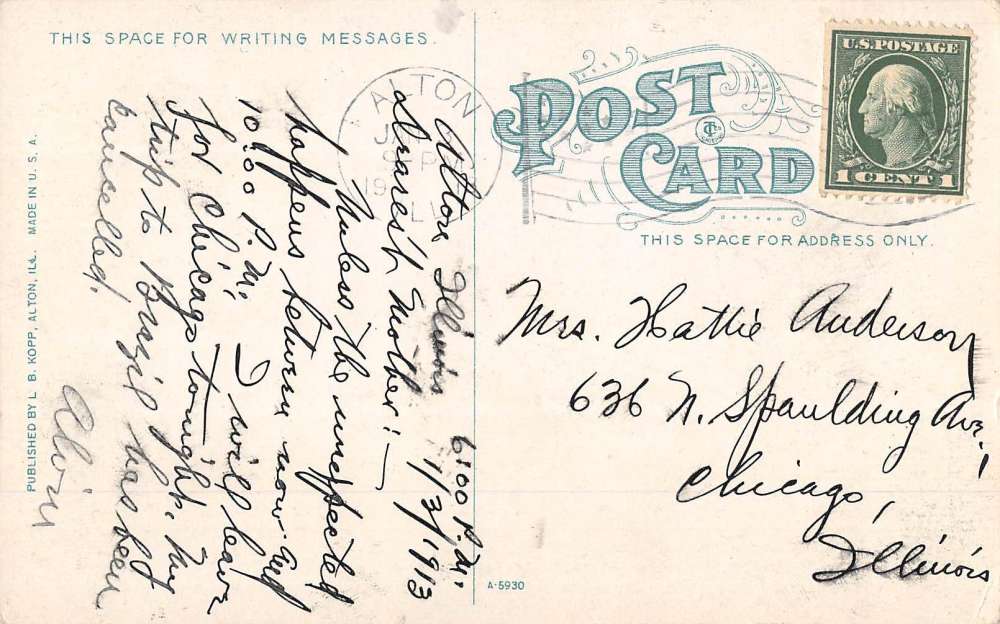 THIS SPACE FOR WRITING MESSAGES.
Alton Illinois 6:00 P.M.
1/3/1913
Dearest Mother:—
Unless the unexpected
happens between now and
10:00 P.M. I will leave
for Chicago tonight. My
trip to Brazil has been
cancelled.
Alwin
PUBLISHED BY L. B. KOPP, ALTON, ILL. MADE IN U. S. A.
ALTON
POST
CARD
U.S. POSTAGE
1 CENT 1
THIS SPACE FOR ADDRESS ONLY.
Mrs. Hattie Anderson
636 N. Spaulding Ave.
Chicago,
Illinois
A-5930